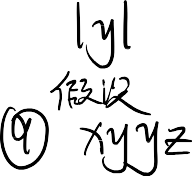 lyl
假设
④ xyyz